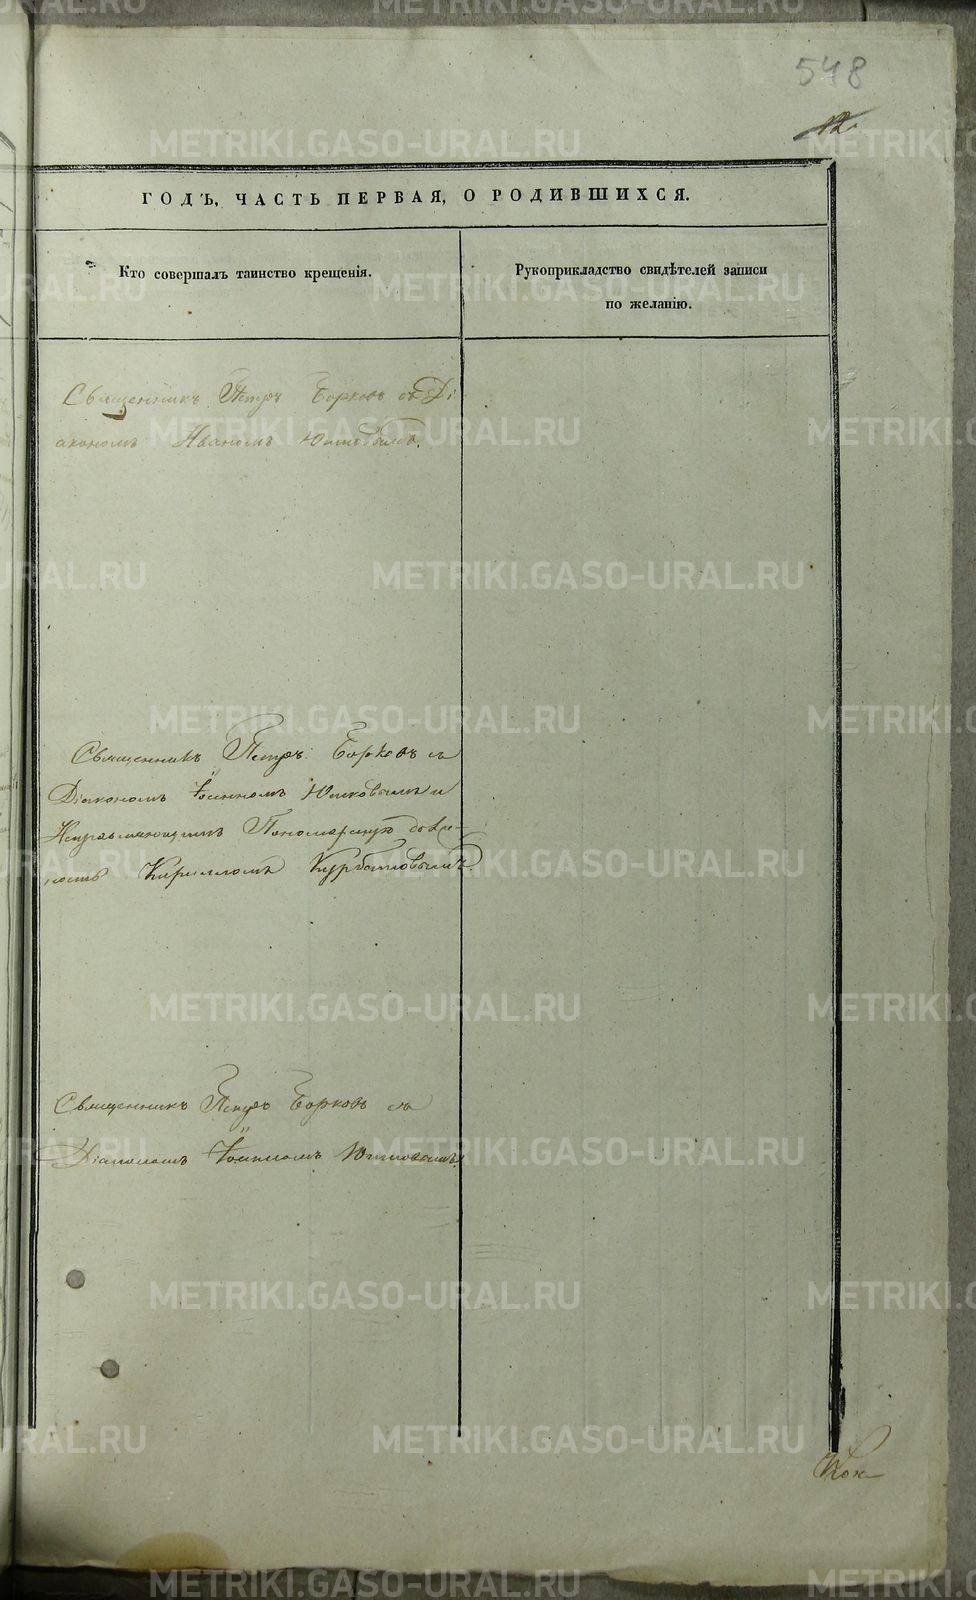 548
12.
ГОДЪ, ЧАСТЬ ПЕРВАЯ, О РОДИВШИХСЯ.
Кто совершалъ таинство крещенія.
Рукоприкладство свидѣтелей записи
по желанію.
Священникъ Петръ Борковъ съ Ді
акономъ Иваномъ Юшковымъ.
Священникъ Петръ Борковъ съ
Діакономъ Іоанномъ Юшковымъ и
Исправляющимъ Пономарскую долж-
ность Кирилломъ Курбатовымъ.
Священникъ Петръ Борковъ съ
Діакономъ Іоанномъ Юшковымъ.
METRIKI.GASO-URAL.RU